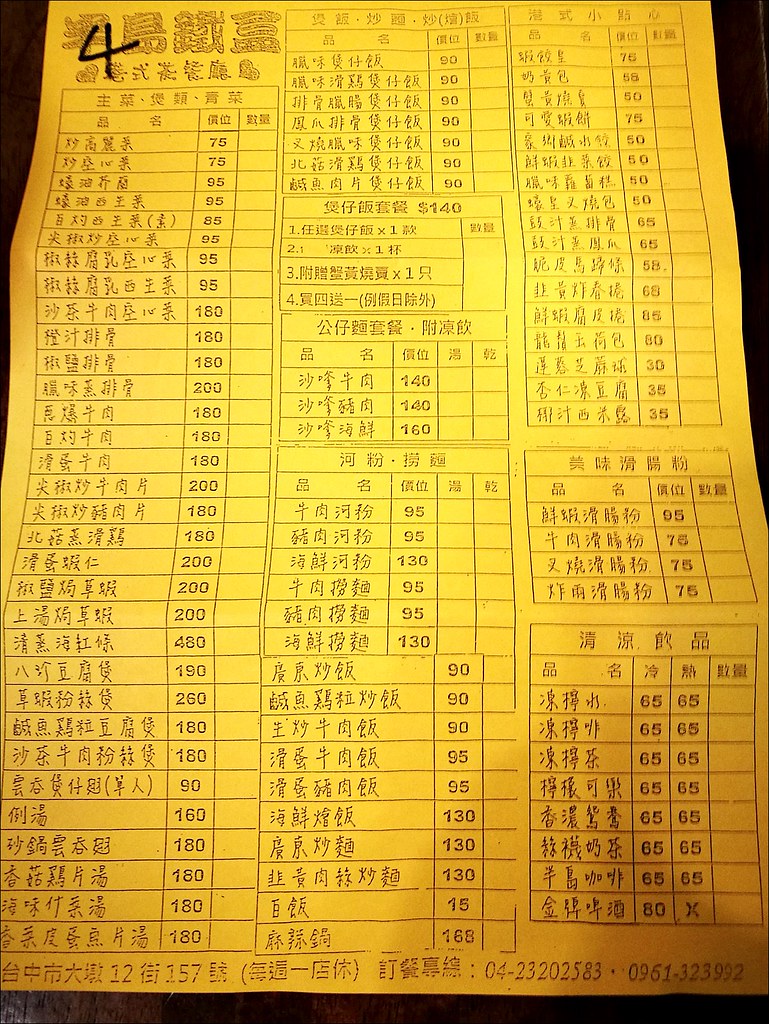 4
半島鐵盒
港式茶餐廳
主菜·煲類·青菜
品 名 價位 數量
炒高麗菜 75
炒空心菜 75
蠔油芥蘭 95
蠔油西生菜 95
白灼西生菜(素) 85
尖椒炒空心菜 95
椒絲腐乳空心菜 95
椒絲腐乳西生菜 95
沙茶牛肉空心菜 180
橙汁排骨 180
椒鹽排骨 180
臘味蒸排骨 200
蔥爆牛肉 180
白灼牛肉 180
滑蛋牛肉 180
尖椒炒牛肉片 200
尖椒炒豬肉片 180
北菇蒸滑鷄 180
滑蛋蝦仁 200
椒鹽焗草蝦 200
上湯焗草蝦 200
清蒸海紅條 480
八珍豆腐煲 190
草蝦粉絲煲 260
鹹魚鷄粒豆腐煲 180
沙茶牛肉粉絲煲 180
雲吞煲仔翅(單人) 90
例湯 160
砂鍋雲吞翅 180
香菇鷄片湯 180
海味什菜湯 180
香菜皮蛋魚片湯 180
煲飯·炒麵·炒(燴)飯
品 名 價位 數量
臘味煲仔飯 90
臘味滑鷄煲仔飯 90
排骨臘腸煲仔飯 90
鳳爪排骨煲仔飯 90
叉燒臘味煲仔飯 90
北菇滑鷄煲仔飯 90
鹹魚肉片煲仔飯 90
煲仔飯套餐 $140
1.任選煲仔飯 x 1 款 數量
2. 凍飲 x 1 杯
3.附贈蟹黃燒賣 x 1 只
4.買四送一(例假日除外)
公仔麵套餐·附凍飲
品 名 價位 湯 乾
沙嗲牛肉 140
沙嗲豬肉 140
沙嗲海鮮 160
河粉·撈麵
品 名 價位 湯 乾
牛肉河粉 95
豬肉河粉 95
海鮮河粉 130
牛肉撈麵 95
豬肉撈麵 95
海鮮撈麵 130
廣東炒飯 90
鹹魚鷄粒炒飯 90
生炒牛肉飯 90
滑蛋牛肉飯 95
滑蛋豬肉飯 95
海鮮燴飯 130
廣東炒麵 130
韭黃肉絲炒麵 130
白飯 15
麻辣鍋 168
港式小點心
品 名 價位 數量
蝦餃皇 75
奶黃包 58
蟹黃燒賣 50
可愛蝦餅 75
家鄉鹹水餃 50
鮮蝦韭菜餃 50
臘味蘿蔔糕 50
蠔皇叉燒包 50
豉汁蒸排骨 65
豉汁蒸鳳爪 65
脆皮馬蹄條 58
韭黃炸春捲 68
鮮蝦腐皮捲 85
龍鬚玉荷包 80
蓮蓉芝蔴球 30
杏仁凍豆腐 35
椰汁西米露 35
美味滑腸粉
品 名 價位 數量
鮮蝦滑腸粉 95
牛肉滑腸粉 75
叉燒滑腸粉 75
炸兩滑腸粉 75
清涼飲品
品 名 冷 熱 數量
凍檸水 65 65
凍檸啡 65 65
凍檸茶 65 65
檸檬可樂 65 65
香濃鴛鴦 65 65
絲襪奶茶 65 65
半島咖啡 65 65
金牌啤酒 80 X
台中市大墩 12 街 157 號 (每週一店休) 訂餐專線：04-23202583·0961-323992